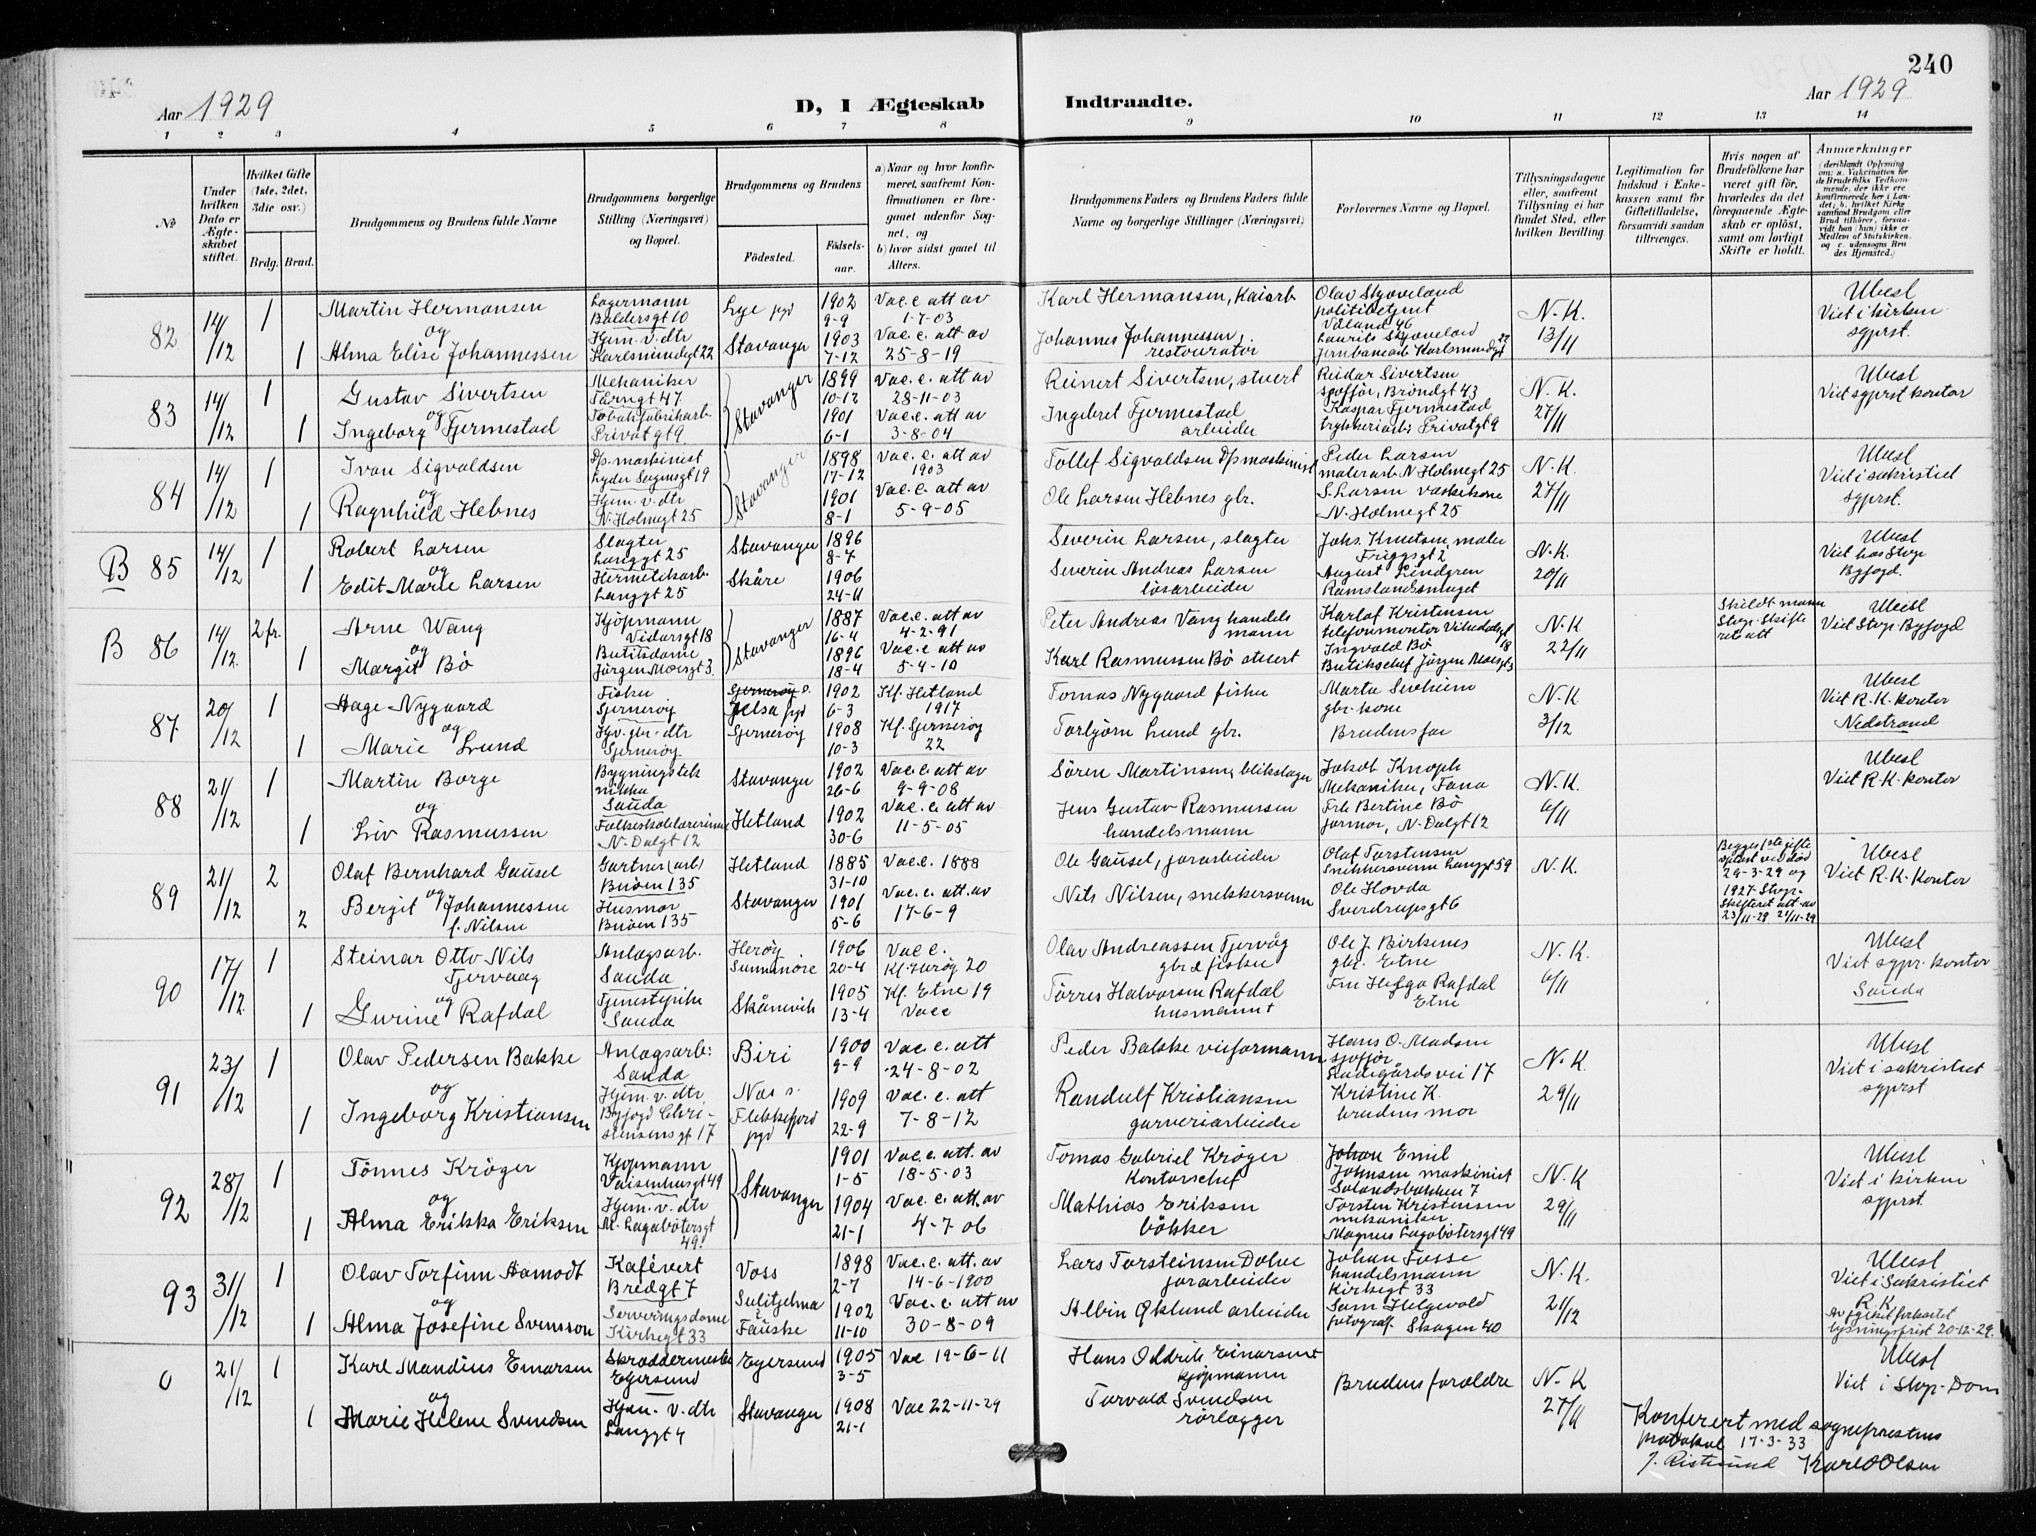 240
Aar 1929
D, I Ægteskab Indtraadte.
Aar 1929
1 2 3 4 5 6 7 8 9 10 11 12 13 14
№
Under hvilken Dato er Ægteskabet stiftet.
Hvilket Gifte (1ste, 2det, 3die osv.)
Brdg. Brud.
Brudgommens og Brudens fulde Navne
Brudgommens borgerlige Stilling (Næringsvei) og Bopæl.
Brudgommens og Brudens
Födested.
Födselsaar.
a) Naar og hvor konfirmeret, saafremt Konfirmationen er foregaaet udenfor Sognet, og
b) hvor sidst gaaet til Alters.
Brudgommens Faders og Brudens Faders fulde Navne og borgerlige Stillinger (Næringsvei)
Forlovernes Navne og Bopæl.
Tillysningsdagene eller, saafremt Tillysning ei har fundet Sted, efter hvilken Bevilling.
Legitimation for Indskud i Enkekassen samt for Giftetilladelse, forsaavidt saadan tiltrænges.
Hvis nogen af Brudefolkene har været gift för, hvorledes da det foregaaende Ægteskab er oplöst, samt om lovligt Skifte er holdt.
Anmærkninger
(deriblandt Oplysning om: a. Vaksination for de Brudefolks Vedkommende, der ikke ere konfirmerede her i Landet; b. hvilket Kirkesamfund Brudgom eller Brud tilhörer, forsaavidt han (hun) ikke er Medlem af Statskirken, og c. udensogns Brudes Hjemsted.)
82 14/12 1 Martin Hermansen Lagermann Baldersgt 10 Lye pgd 1902 9-9 Vac. e att av 1-7-03 Karl Hermansen, Kaiarb Olav Skjoveland politibetjent Våland 46 N.K. Ubesl Viet i kirken
og
1 Alma Elise Johannessen Hjem. v. dtr Karlsmindegt 22 Stavanger 1903 7-12 Vac. e. att. av 25-8-19 Johannes Johannessen, restauratör Laurits Skjoveland jernbanearb Karlsmindegt 22 13/11 sgprst.
83 14/12 1 Gustav Sivertsen Mekaniker Tårngt 47 Stavanger 1899 10-12 Vac. e. att av 28-11-03 Reinert Sivertsen, stuert Reidar Sivertsen sjofför, Bröndgt 43 N.K. Ubesl Viet sgprst kontor
og
1 Ingeborg Fjermestad Tobakfabrikarb. Privatgt 9 1901 6-1 Vac. e. att av 3-8-04 Ingebret Fjermestad arbeider Kaspar Fjermestad trykkeriarb. Privatgt 9 27/11
84 14/12 1 Ivan Sigvaldsen Dp. maskinist Lyder Sagensgt 19 Stavanger 1898 17-12 Vac. e. att av 1903 Tollef Sigvaldsen Dp maskinist Peder Larsen malerarb N. Holmegt 25 N.K. Ubesl Viet i sakristiet
og
1 Ragnhild Hebnes Hjem. v. dtr N. Holmegt 25 1901 8-1 Vac. e. att av 5-9-05 Ole Larsen Hebnes gbr. S. Larsen vaskekone N. Holmegt 25 27/11 sgprst.
B 85 14/12 1 Robert Larsen Slagter Langgt 25 Stavanger 1896 8-7 Severin Larsen, slagter Johs. Knutsen, maler Friggsgt 2 N.K. Ubesl Viet hos Stvgr Byfogd.
og
1 Edit Marie Larsen Hermetikarb. Langgt 25 Skåre 1906 24-11 Severin Andreas Larsen lösarbeider August Lindgren 20/11
B 86 14/12. 2 fr. Arne Wang Kjöpmann Vidarsgt 18 Stavanger 1887 16-4 Vac. e. att av 4-2-91 Peter Andreas Vang handelsmann Karlof Kristensen telefonmontör N.K Skildt mann Stvgr. Skifteret att Ubesl Viet Stvgr. Byfogd
og
1 Margit Bö Butiksdame Jörgen Moesgt 3. 1896 18-4 Vac. e att av 5-4-10 Karl Rasmussen Bö stuert Ingvald Bö Butikschef Jörgen Moesgt 3 22/11
87 20/12 1 Aage Nygaard Fisker Sjernerøy Jelsa pgd 1902 6-3 Kf. Hetland 1917 Tomas Nygaard fisker Marta gbr. kone N.K Ubesl Viet R.K. kontor
og
1 Marie Lund Hjv. gbr. dtr Sjernerøy Sjernerøy 1908 10-3 Kf. Sjernerøy 22 Torbjörn Lund gbr. Brudens far 3/12 Nedstrand
88 21/12 1 Martin Borge Bygningstekniker Sauda Stavanger 1902 26-6 Vac. e. att av 9-9-08 Sören Martinsen, blikslager Jakob Knoph Mekaniker, Fana N.K. Ubesl Viet R.K. kontor
og
1 Liv Rasmussen Folkeskolelærerinne N. Dalgt 12 Hetland 1902 30-6 Vac. e. att av 11-5-05 Jens Gustav Rasmussen handelsmann Frk Bertine Bö jormor, N. Dalgt 12 6/11
89 21/12 2 Olaf Bernhard Gausel Gartner(arb) Buöen 135 Hetland 1885 31-10 Vac. e. 1888 Ole Gausel, jorarbeider Olaf Torstensen Snekkersvenn Langgt 59 N.K. Begges 1ste gifte oplöst ved död 29-3-29 og 1927 Stvgr. Skifteret att. av 23/11-29 27/11-29 Ubesl Viet R.K. Kontor
og
2 Bergit Johannessen f. Nilsen Husmor Buöen 135 Stavanger 1901 5-6 Vac. e. att. av 17-6-9 Nils Nilsen, snekkersvenn Ole Hovda Sverdrupsgt 6
90 17/12. 1 Steinar Otto Nils Tjervaag Anlægsarb. Sauda Heröy Sunnmöre 1906 20-4 Vac e. Kf. Heröy 20 Olav Andreassen Tjervåg gbr & fisker Ole J. Birkenes gbr. Etne N.K. Ubesl Viet sgpr. kontor
og
1 Gurine Rafdal Tjenestepike Sauda Skånevik 1905 13-4 Kf. Etne 19 Vacc Törres Halvorsen Rafdal husmann + Fru Helga Rafdal Etne 6/11 Sauda
91 23/12 1 Olav Pedersen Bakke Anlægsarb: Sauda Biri 1900 9-9 Vac. e. att 24-8-02 Peder Bakke veiformann Hans O. Madsen sjofför N.K. Ubesl Viet i sakristiet
og
1 Ingeborg Kristiansen Hjem. v. dtr Byfogd Christensensgt 17 Nas i Flekkefjord pgd 1909 22-9 Vac. e. att 7-8-12 Randulf Kristiansen garveriarbeider Kristine K. brudens mor 29/11 sgprst
92 28/12 1 Tönnes Kröger Kjöpmann Vaisenhusgt 49 Stavanger 1901 1-5 Vac. e. att. av 18-5-03 Tomas Gabriel Kröger Kontorschef Johan Emil Johnsen maskinist Solandsbakken 7 N.K Ubesl Viet i kirken
og
1 Alma Erikka Eriksen Hjem. v. dtr M. Lagabötersgt 49. 1904 21-1 Vac. e. att. av 4-7-06 Mathias Eriksen bökker Torsten Kristensen mekaniker Magnus Lagabötersgt 49 29/11 sgprst.
93 31/12 1 Olav Torfinn Aamodt Kafévert Bredgt 7 Voss 1898 2-7 Vac. e. att. av 14-6-1900 Lars Torsteinsen Dolve jorarbeider Johan Fosse handelsmann Kirkegt 33 N.K. Ubesl Viet i Sakristiet R.K
og
1 Alma Josefine Svensson Serveringsdame Kirkegt 33 Sulitjelma i Fauske 1902 11-10 Vac. e. att av 30-8-09 Albin Øklund arbeider Sam Helgevold fotograf. Skagen 40 21/12 lysningsfrist 20-12-29.
0 21/12 1 Karl Mandius Einarsen Skræddermester Egersund Egersund 1905 3-5 Vac 19-6-11 Hans Oldrik Einarsen + kjöpmann Brudens foreldre N.K Ubesl Viet i Stvgr. Dom
og
1 Marie Helene Svendsen Hjem. v. dtr Langgt 4 Stavanger 1908 21-1 Vac 22-11-29 Torvald Svendsen rörlegger 27/11
Konferert med sogneprestens
protokol 17-3-33
Karl O Olsen